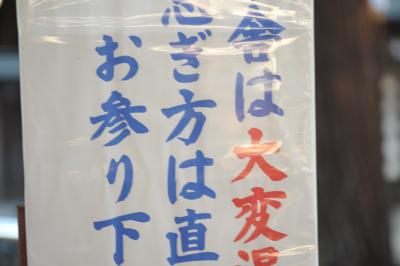 舎は大変混
急ぎ方は直
お参り下